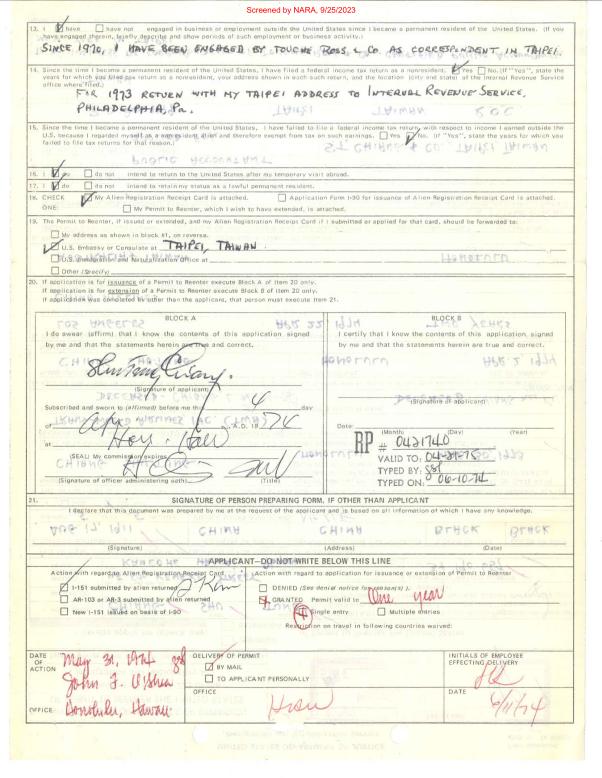 Screened by NARA, 9/25/2023
13. I ☑ have ☐ have not engaged in business or employment outside the United States since I became a permanent resident of the United States. (If you
have engaged therein, briefly describe and show periods of such employment or business activity.)
SINCE 1970, I HAVE BEEN ENGAGED BY TOUCHE ROSS & CO. AS CORRESPONDENT IN TAIPEI.
14. Since the time I became a permanent resident of the United States, I have filed a federal income tax return as a nonresident. ☑ Yes ☐ No. (If "Yes", state the
years for which you filed tax return as a nonresident, your address shown in each such return, and the location (city and state) of the Internal Revenue Service
office where filed.)
FOR 1973 RETURN WITH MY TAIPEI ADDRESS TO INTERNAL REVENUE SERVICE,
PHILADELPHIA, Pa.
15. Since the time I became a permanent resident of the United States, I have failed to file a federal income tax return, with respect to income I earned outside the
U.S. because I regarded myself as a nonresident alien and therefore exempt from tax on such earnings. ☐ Yes ☑ No. (If "Yes", state the years for which you
failed to file tax returns for that reason.)
16. I ☑ do ☐ do not intend to return to the United States after my temporary visit abroad.
17. I ☑ do ☐ do not intend to retain my status as a lawful permanent resident.
18. CHECK ☑ My Alien Registration Receipt Card is attached. ☐ Application Form I-90 for issuance of Alien Registration Receipt Card is attached.
ONE: ☐ My Permit to Reenter, which I wish to have extended, is attached.
19. The Permit to Reenter, if issued or extended, and my Alien Registration Receipt Card if I submitted or applied for that card, should be forwarded to:
☐ My address as shown in block #1, on reverse.
☑ U.S. Embassy or Consulate at TAIPEI, TAIWAN.
☐ U.S. Immigration and Naturalization Office at
☐ Other (Specify)
20. If application is for issuance of a Permit to Reenter execute Block A of Item 20 only.
If application is for extension of a Permit to Reenter execute Block B of item 20 only.
If application was completed by other than the applicant, that person must execute Item 21.
BLOCK A
I do swear (affirm) that I know the contents of this application signed
by me and that the statements herein are true and correct.
(Signature of applicant)
Subscribed and sworn to (affirmed) before me this 4 day
of A.D. 19 74
at
(SEAL) My commission expires
(Signature of officer administering oath) (Title)
BLOCK B
I certify that I know the contents of this application, signed
by me and that the statements herein are true and correct.
(Signature of applicant)
Date:
(Month) (Day) (Year)
RP # 0421740
VALID TO: 04-21-75
TYPED BY:
TYPED ON: 06-10-74
21. SIGNATURE OF PERSON PREPARING FORM, IF OTHER THAN APPLICANT
I declare that this document was prepared by me at the request of the applicant and is based on all information of which I have any knowledge.
(Signature) (Address) (Date)
APPLICANT—DO NOT WRITE BELOW THIS LINE
Action with regard to Alien Registration Receipt Card
☑ I-151 submitted by alien returned
☐ AR-103 or AR-3 submitted by alien returned
☐ New I-151 issued on basis of I-90
Action with regard to application for issuance or extension of Permit to Reenter
☐ DENIED (See denied notice for reason(s).)
☑ GRANTED Permit valid to One year
☑ Single entry ☐ Multiple entries
Restriction on travel in following countries waived:
DATE OF ACTION May 31, 1974
John F. O'Shea
OFFICE: Honolulu, Hawaii
DELIVERY OF PERMIT
☑ BY MAIL
☐ TO APPLICANT PERSONALLY
OFFICE
INITIALS OF EMPLOYEE
EFFECTING DELIVERY
DATE 6/11/74